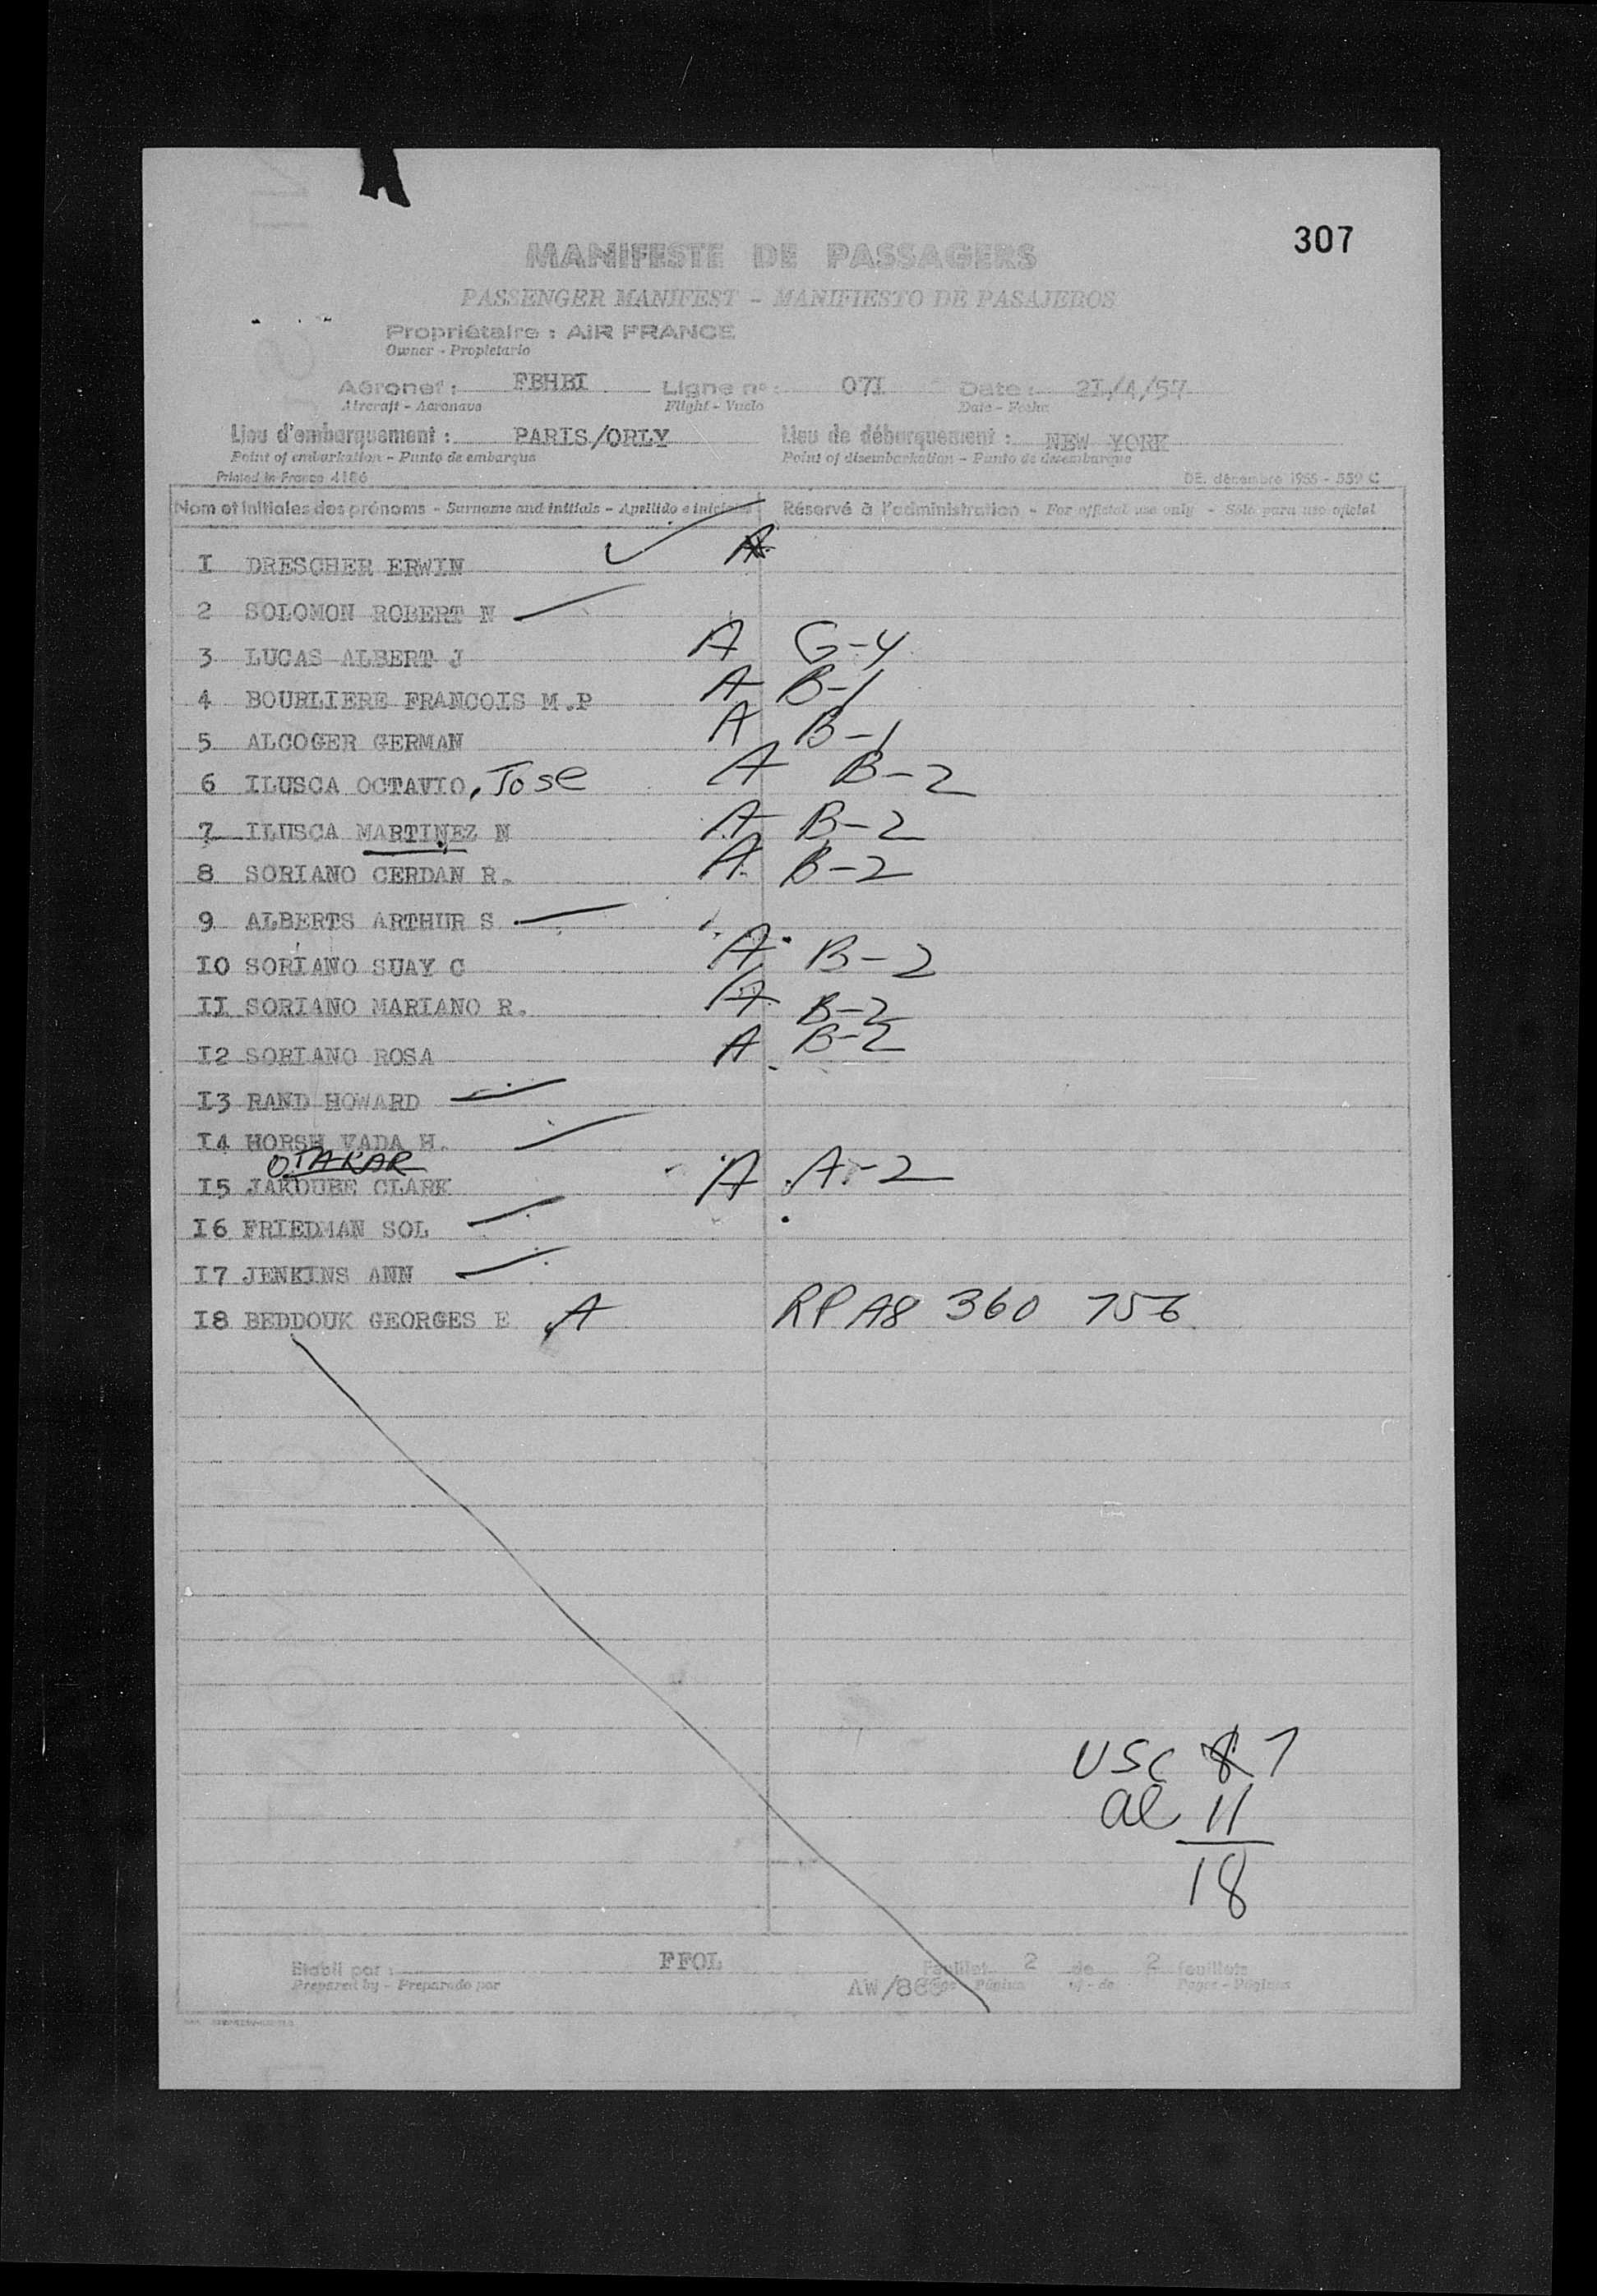 307
MANIFESTE DE PASSAGERS
PASSENGER MANIFEST - MANIFIESTO DE PASAJEROS
Propriétaire : AIR FRANCE
Owner - Propietario
Aéronef : FBHBI Ligne n° : 07I Date : 2I/4/57
Aircraft - Aeronave Flight - Vuelo Date - Fecha
Lieu d'embarquement : PARIS/ORLY Lieu de débarquement : NEW YORK
Point of embarkation - Punto de embarque Point of disembarkation - Punto de desembarque
Printed in France 4186 DE. décembre 1955 - 559 C
Nom et initiales des prénoms - Surname and initials - Apellido e iniciales Réservé à l'administration - For official use only - Sólo para uso oficial
I DRESCHER ERWIN A
2 SOLOMON ROBERT N
3 LUCAS ALBERT J A G-4
4 BOURLIERE FRANCOIS M.P A B-1
5 ALCOGER GERMAN A B-1
6 ILUSCA OCTAVIO, Jose A B-2
7 ILUSCA MARTINEZ N A B-2
8 SORIANO CERDAN R. A B-2
9 ALBERTS ARTHUR S
IO SORIANO SUAY C A B-2
II SORIANO MARIANO R. A B-2
I2 SORIANO ROSA A B-2
I3 RAND HOWARD
I4 HORSH VADA H.
OTAKAR
I5 JAKOUBE CLARK A A-2
I6 FRIEDMAN SOL
I7 JENKINS ANN
I8 BEDDOUK GEORGES E A RP A8 360 756
USC 8 7
al 11
18
Etabli par : FFOL Feuillet 2 de 2 feuillets
Prepared by - Preparado por AW/86 Página of - de Pages - Páginas